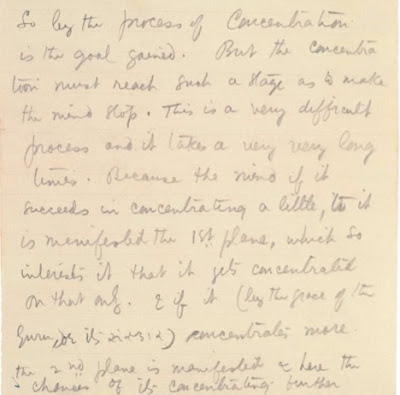 So by the process of Concentration
is the goal gained. But the concentra
tion must reach such a stage as to make
the mind stop. This is a very difficult
process and it takes a very very long
times. Because the mind if it
succeeds in concentrating a little, to it
is manifested the 1st plane, which so
interests it that it gets concentrated
on that only. & if it (by the grace of the
Guru, or its) concentrates more
the 2nd plane is manifested & here the
chances of its concentrating further